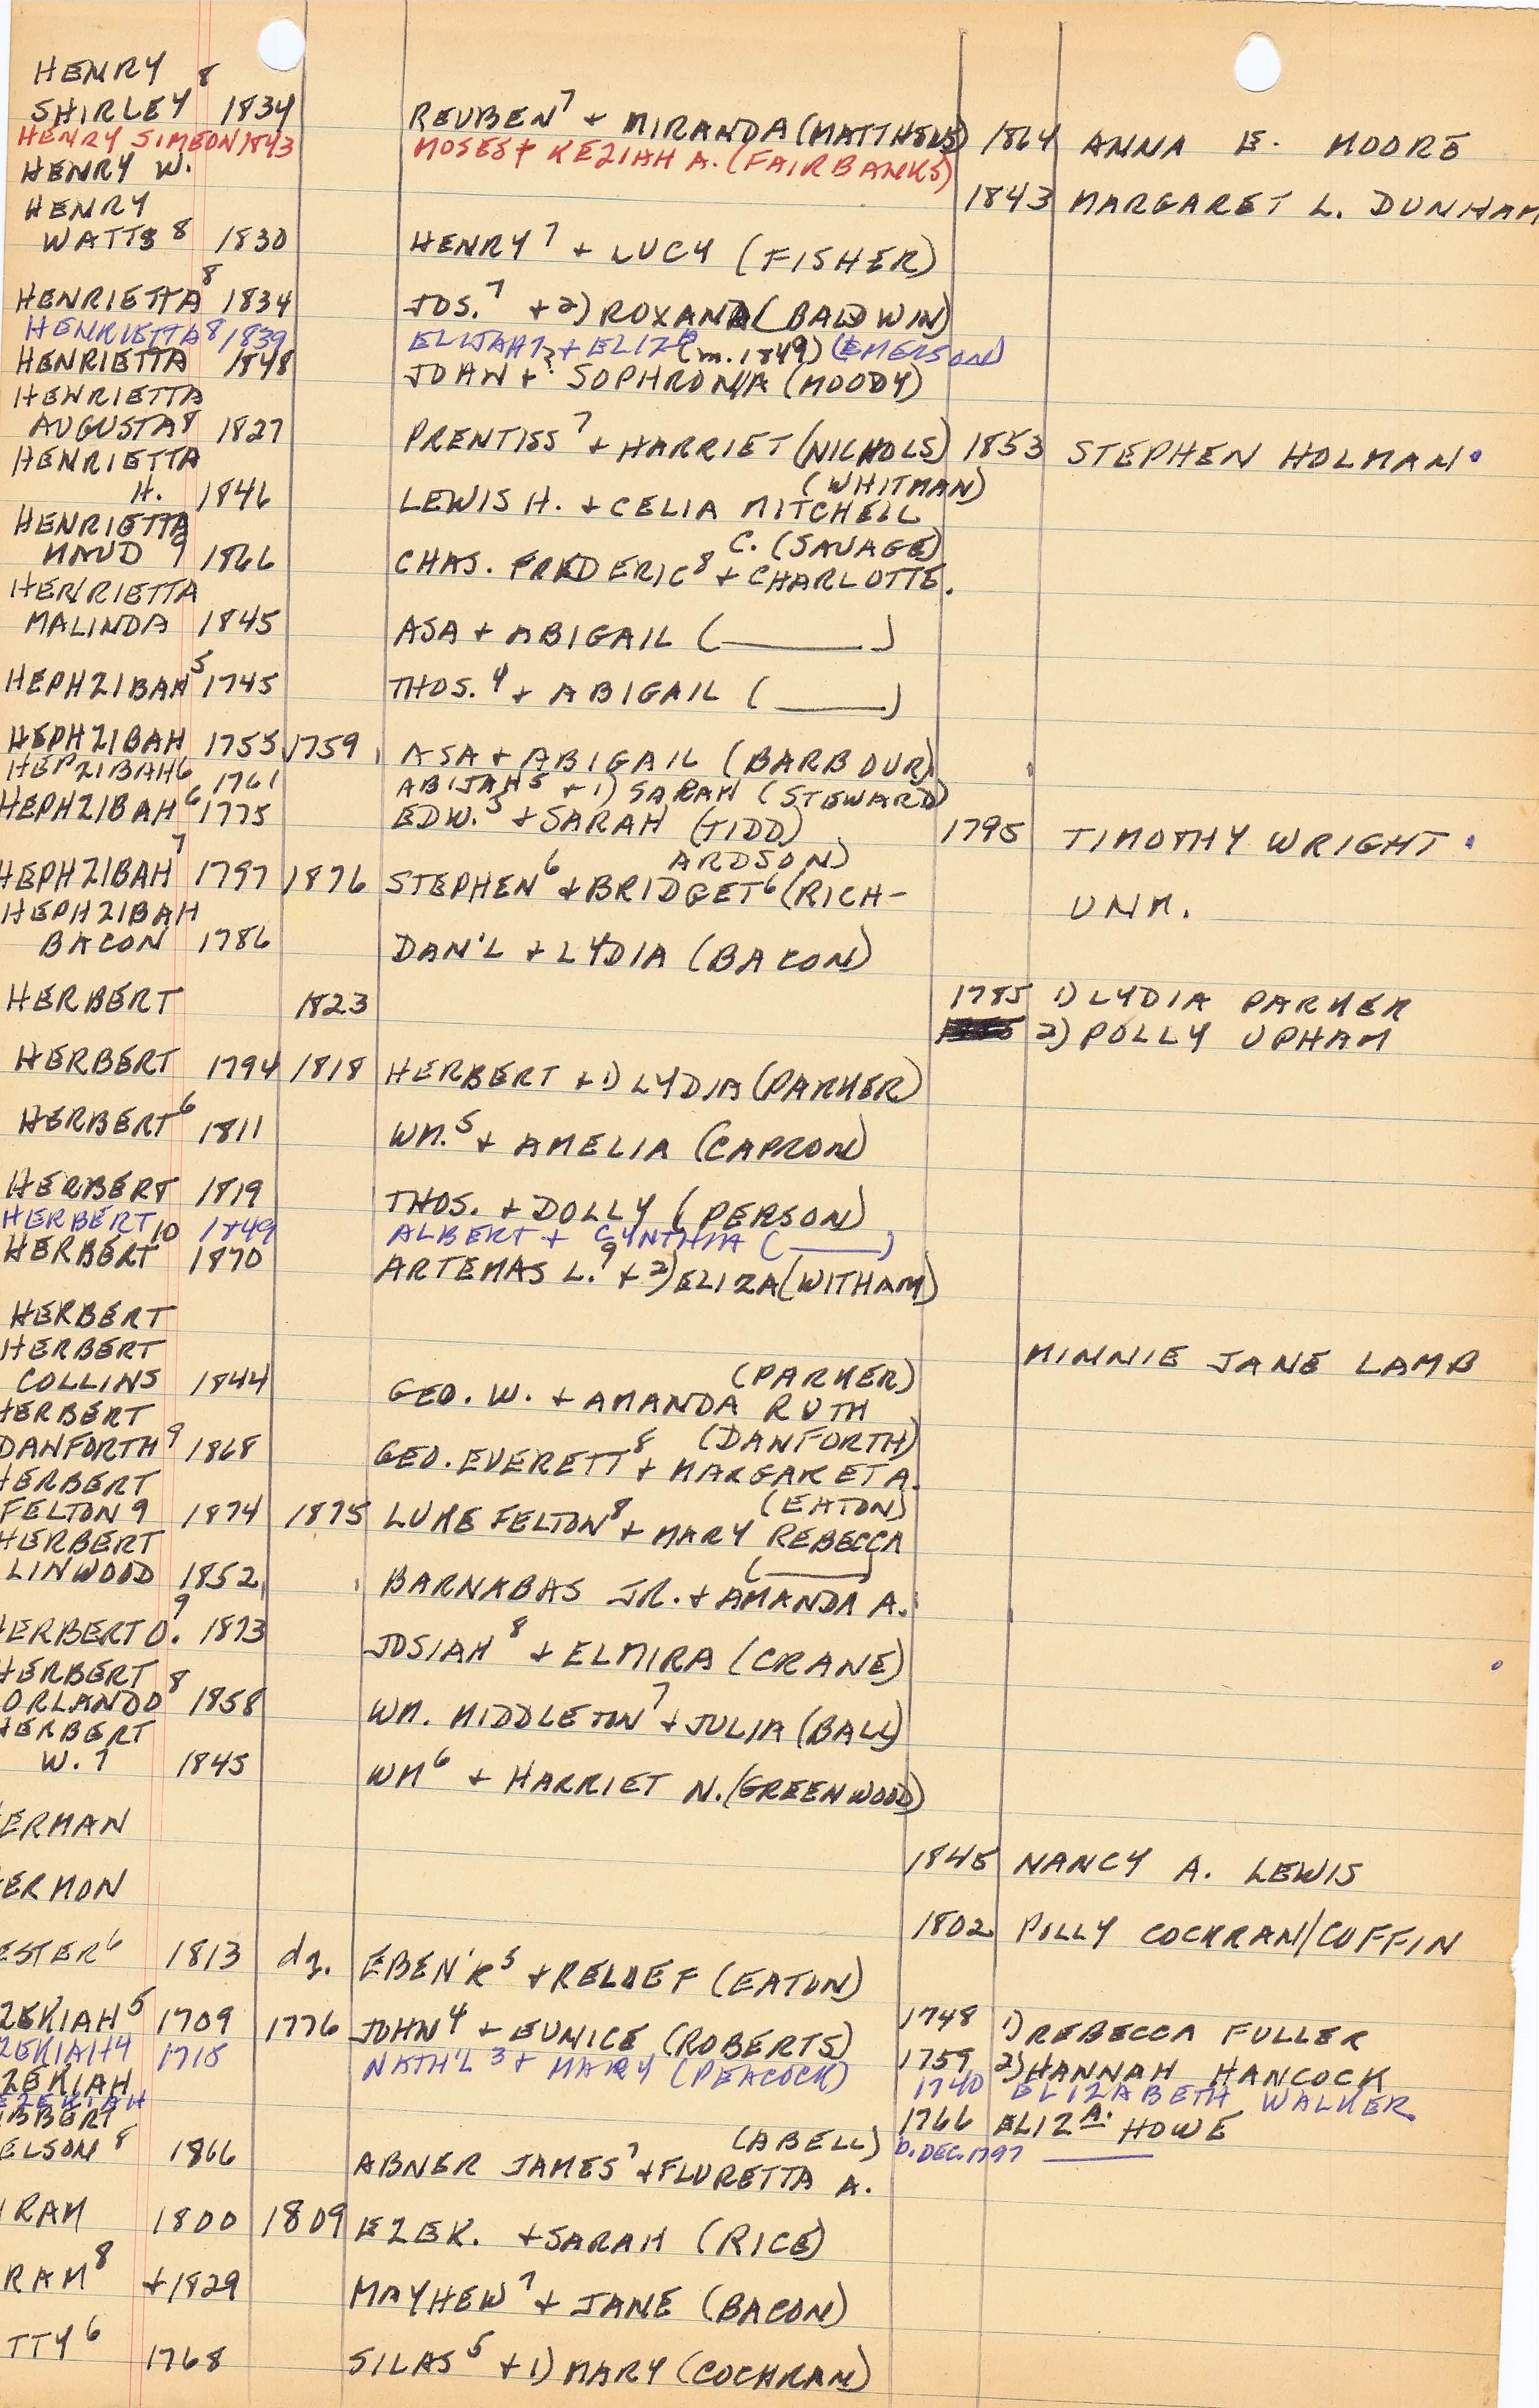 HENRY 8
SHIRLEY 1834 REUBEN7 + MIRANDA (MATTHEWS) 1864 ANNA E. MOORE
HENRY SIMEON 1843 MOSES + KEZIAH A. (FAIRBANKS)
HENRY W. 1843 MARGARET L. DUNHAM
HENRY
WATTS 8 1830 HENRY7 + LUCY (FISHER)
HENRIETTA8 1834 JOS.7 + 2) ROXANA (BALDWIN)
HENRIETTA8 1839 ELIJAH7 + ELIZA (m. 1849) (EMERSON)
HENRIETTA 1848 JOHN + SOPHRONIA (MOODY)
HENRIETTA
AUGUSTA8 1827 PRENTISS7 + HARRIET (NICHOLS) 1853 STEPHEN HOLMAN
HENRIETTA (WHITMAN)
H. 1846 LEWIS H. + CELIA MITCHELL
HENRIETTA C. (SAVAGE)
MAUD 9 1866 CHAS. FREDERIC8 + CHARLOTTE.
HENRIETTA
MALINDA 1845 ASA + ABIGAIL (______)
HEPHZIBAH5 1745 THOS.4 + ABIGAIL (______)
HEPHZIBAH 1755 1759 ASA + ABIGAIL (BARBOUR)
HEPZIBAH6 1761 ABIJAH5 + 1) SARAH (STEWARD)
HEPHZIBAH6 1775 EDW.5 + SARAH (TIDD) 1795 TIMOTHY WRIGHT
ARDSON)
HEPHZIBAH7 1797 1876 STEPHEN6 + BRIDGET6 (RICH- UNM.
HEPHZIBAH
BACON 1786 DAN'L + LYDIA (BACON)
HERBERT 1823 1785 1) LYDIA PARKER
2) POLLY UPHAM
HERBERT 1794 1818 HERBERT + 1) LYDIA (PARKER)
HERBERT6 1811 WM.5 + AMELIA (CAPRON)
HERBERT 1819 THOS. + DOLLY (PERSON)
HERBERT 1849 ALBERT + CYNTHIA (______)
HERBERT10 1870 ARTEMAS L.9 + 2) ELIZA (WITHAM)
HERBERT MINNIE JANE LAMB
HERBERT (PARKER)
COLLINS 1844 GEO. W. + AMANDA RUTH
HERBERT (DANFORTH)
DANFORTH9 1868 GEO. EVERETT8 + MARGARET A.
HERBERT (EATON)
FELTON 9 1874 1875 LUKE FELTON8 + MARY REBECCA
HERBERT (______)
LINWOOD 1852 BARNABAS JR. + AMANDA A.
HERBERT O.9 1873 JOSIAH8 + ELMIRA (CRANE)
HERBERT
ORLANDO8 1858 WM. MIDDLETON7 + JULIA (BALL)
HERBERT
W. 7 1845 WM6 + HARRIET N. (GREENWOOD)
ERMAN 1845 NANCY A. LEWIS
ERMON 1802 POLLY COCHRAN/COFFIN
ESTER6 1813 dy. EBEN'R5 + RELIEF (EATON)
ZEKIAH5 1709 1776 JOHN4 + EUNICE (ROBERTS) 1748 1) REBECCA FULLER
1759 2) HANNAH HANCOCK
ZEKIAH4 1715 NATH'L3 + MARY (PEACOCK) 1740 ELIZABETH WALKER
ZEKIAH 1766 ELIZA. HOWE
EZEKIAH D. DEC. 1797 ______
BBERT (ABELL)
ELSON8 1866 ABNER JAMES7 + FLURETTA A.
IRAM 1800 1809 EZEK. + SARAH (RICE)
RAM8 +1829 MAYHEW7 + JANE (BACON)
TTY6 1768 SILAS5 + 1) MARY (COCHRAN)